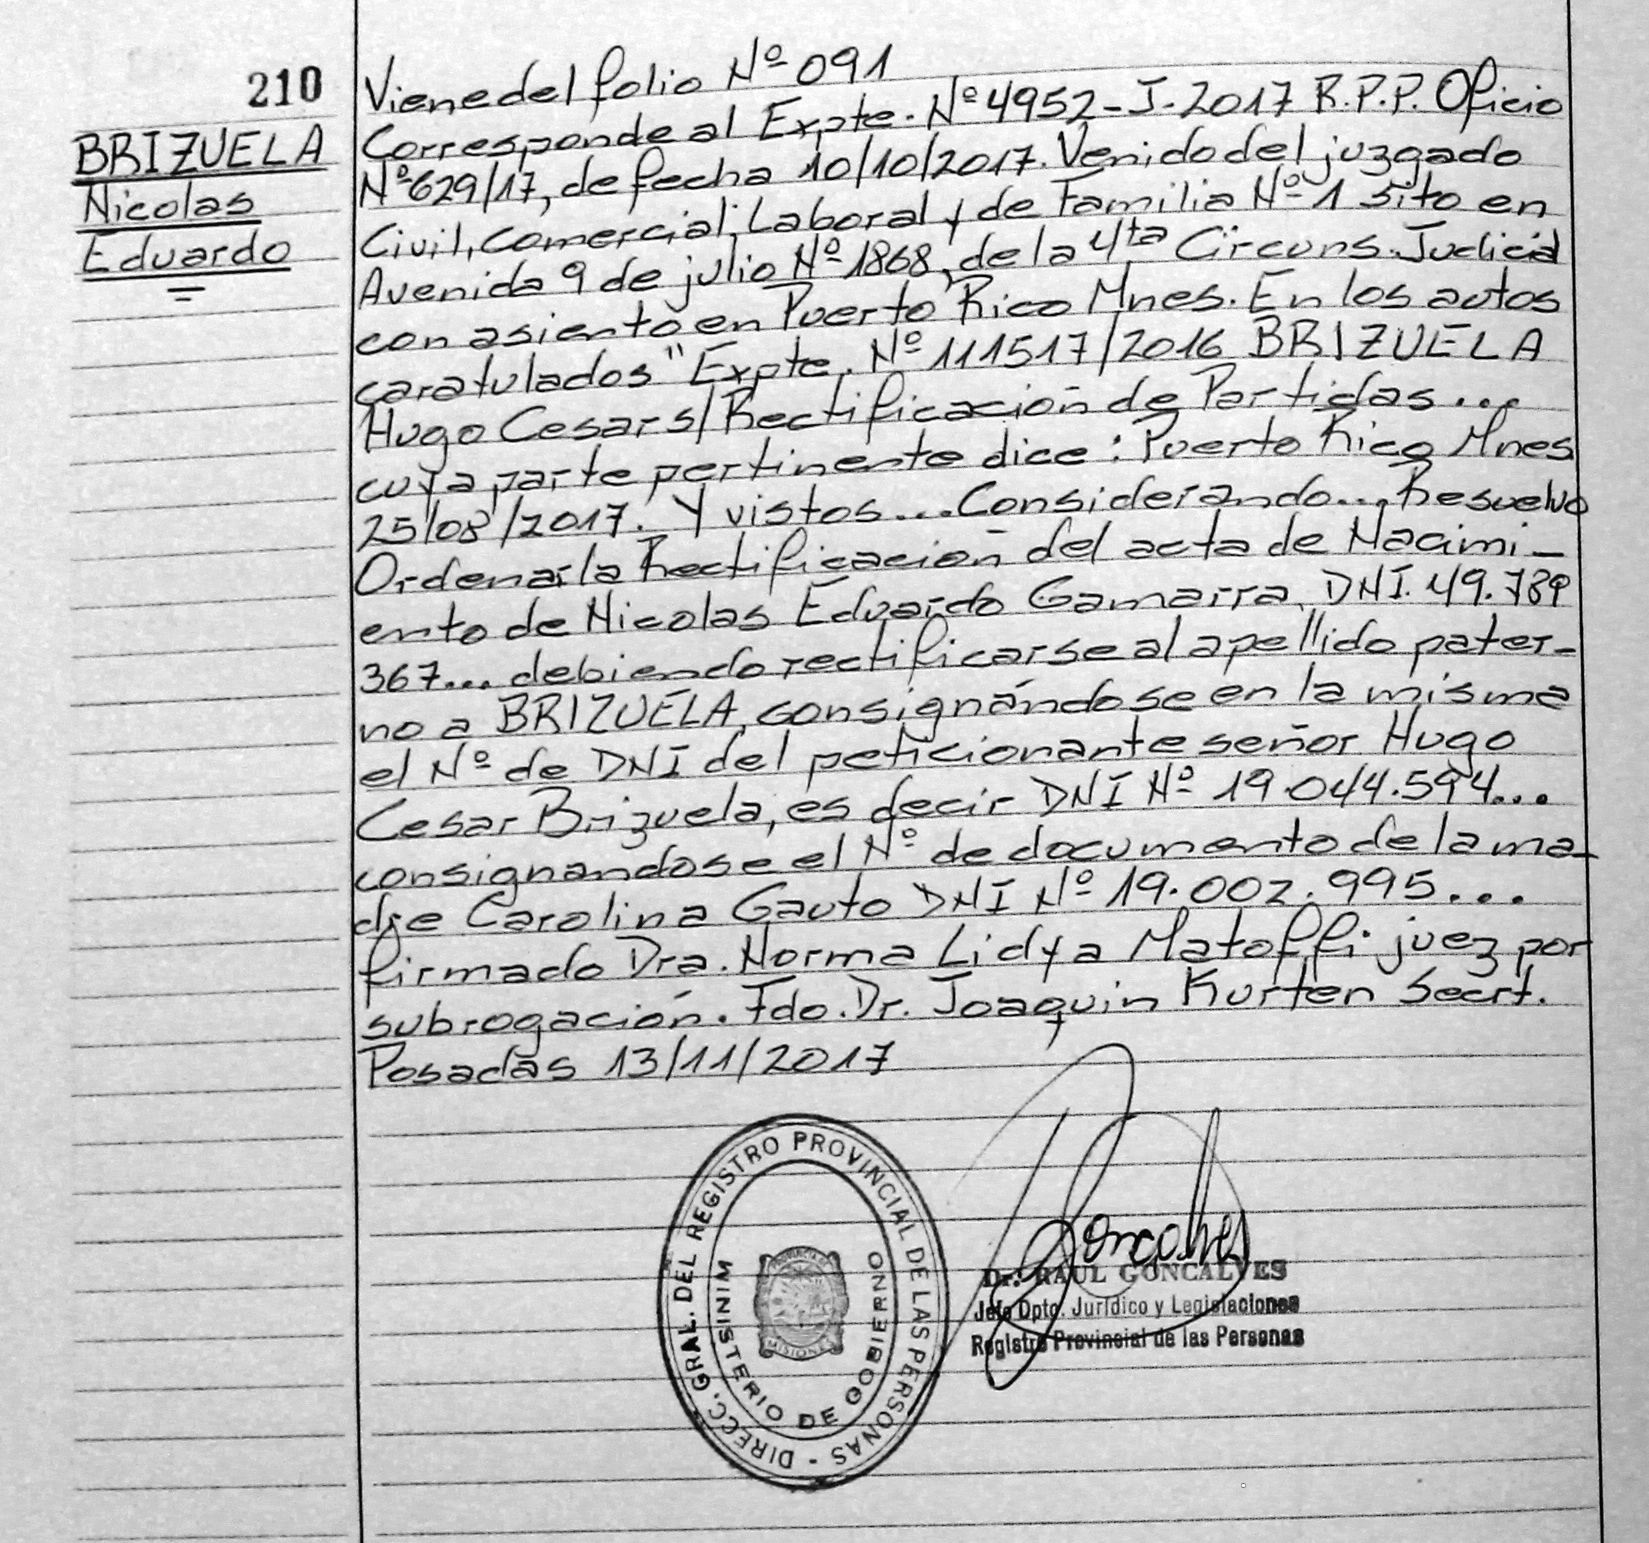 210
BRIZUELA
Nicolas
Eduardo
Viene del folio Nº 091
Corresponde al Expte. Nº 4952-J-2017 R.P.P. Oficio
Nº 629/17, de fecha 10/10/2017. Venido del juzgado
Civil, Comercial, Laboral y de Familia Nº 1 sito en
Avenida 9 de julio Nº 1868, de la 4ta Circuns. Judicial
con asiento en Puerto Rico Mnes. En los autos
caratulados "Expte. Nº 111517/2016 BRIZUELA
Hugo Cesar s/Rectificación de Partidas...
cuya parte pertinente dice: Puerto Rico Mnes
25/08/2017. Y vistos... Considerando... Resuelvo
Ordenar la Rectificación del acta de Nacimi-
ento de Nicolas Eduardo Gamarra, DNI. 49.789
367... debiendo rectificarse al apellido pater-
no a BRIZUELA, consignándose en la misma
el Nº de DNI del peticionante señor Hugo
Cesar Brizuela, es decir DNI Nº 19.044.594...
consignandose el Nº de documento de la ma-
dre Carolina Gauto DNI Nº 19.002.995...
firmado Dra. Norma Lidya Matoffi juez por
subrogación. Fdo. Dr. Joaquin Kurten Secrt.
Posadas 13/11/2017
DIRECC. GRAL. DEL REGISTRO PROVINCIAL DE LAS PERSONAS -
MINISTERIO DE GOBIERNO
PROVINCIA DE
MISIONES
Goncalves
Dr. RAUL GONCALVES
Jefe Dpto. Jurídico y Legislaciones
Registro Provincial de las Personas